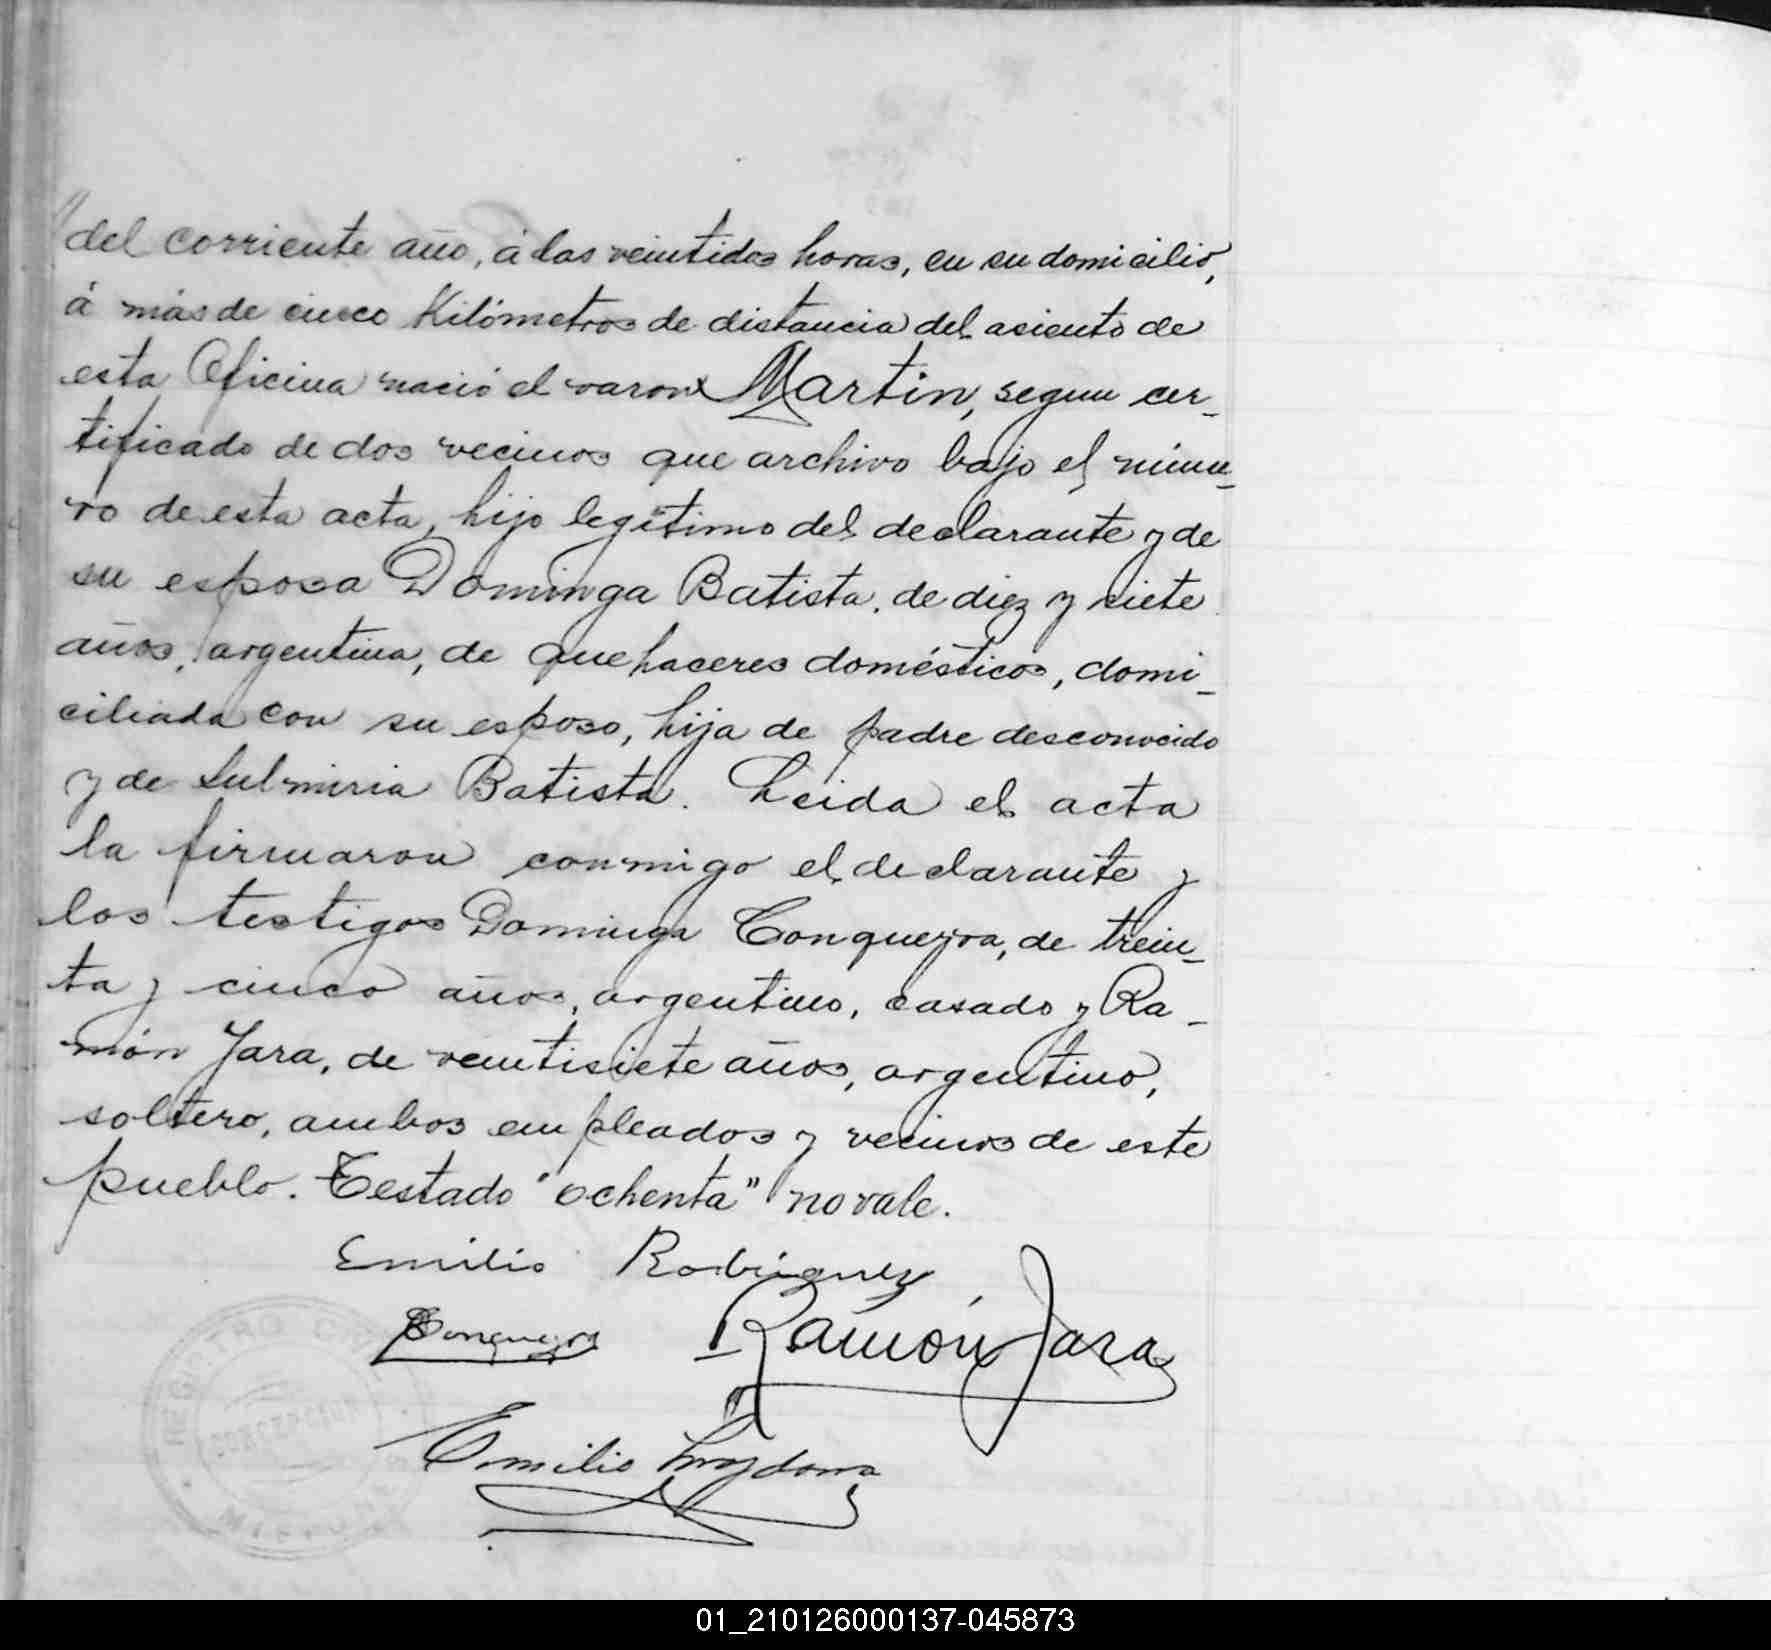 del corriente año, á las veintidos horas, en su domicilio,
á más de cinco Kilómetros de distancia del asiento de
esta Oficina nació el varon Martin, segun cer-
tificado de dos vecinos que archivo bajo el núme-
ro de esta acta, hijo legítimo del declarante y de
su esposa Dominga Batista, de diez y siete
años, argentina, de quehaceres domésticos, domi-
ciliada con su esposo, hija de padre desconocido
y de Batista. Leida el acta
la firmaron conmigo el declarante y
los testigos Dominga de trein-
ta y cinco años, argentino, casado y Ra-
món Jara, de veintisiete años, argentino,
soltero, ambos empleados y vecinos de este
pueblo. Testado "ochenta" no vale.
Emilio Rodriguez
Ramón Jara
Emilio
REGISTRO
MISIONES
01_210126000137-045873